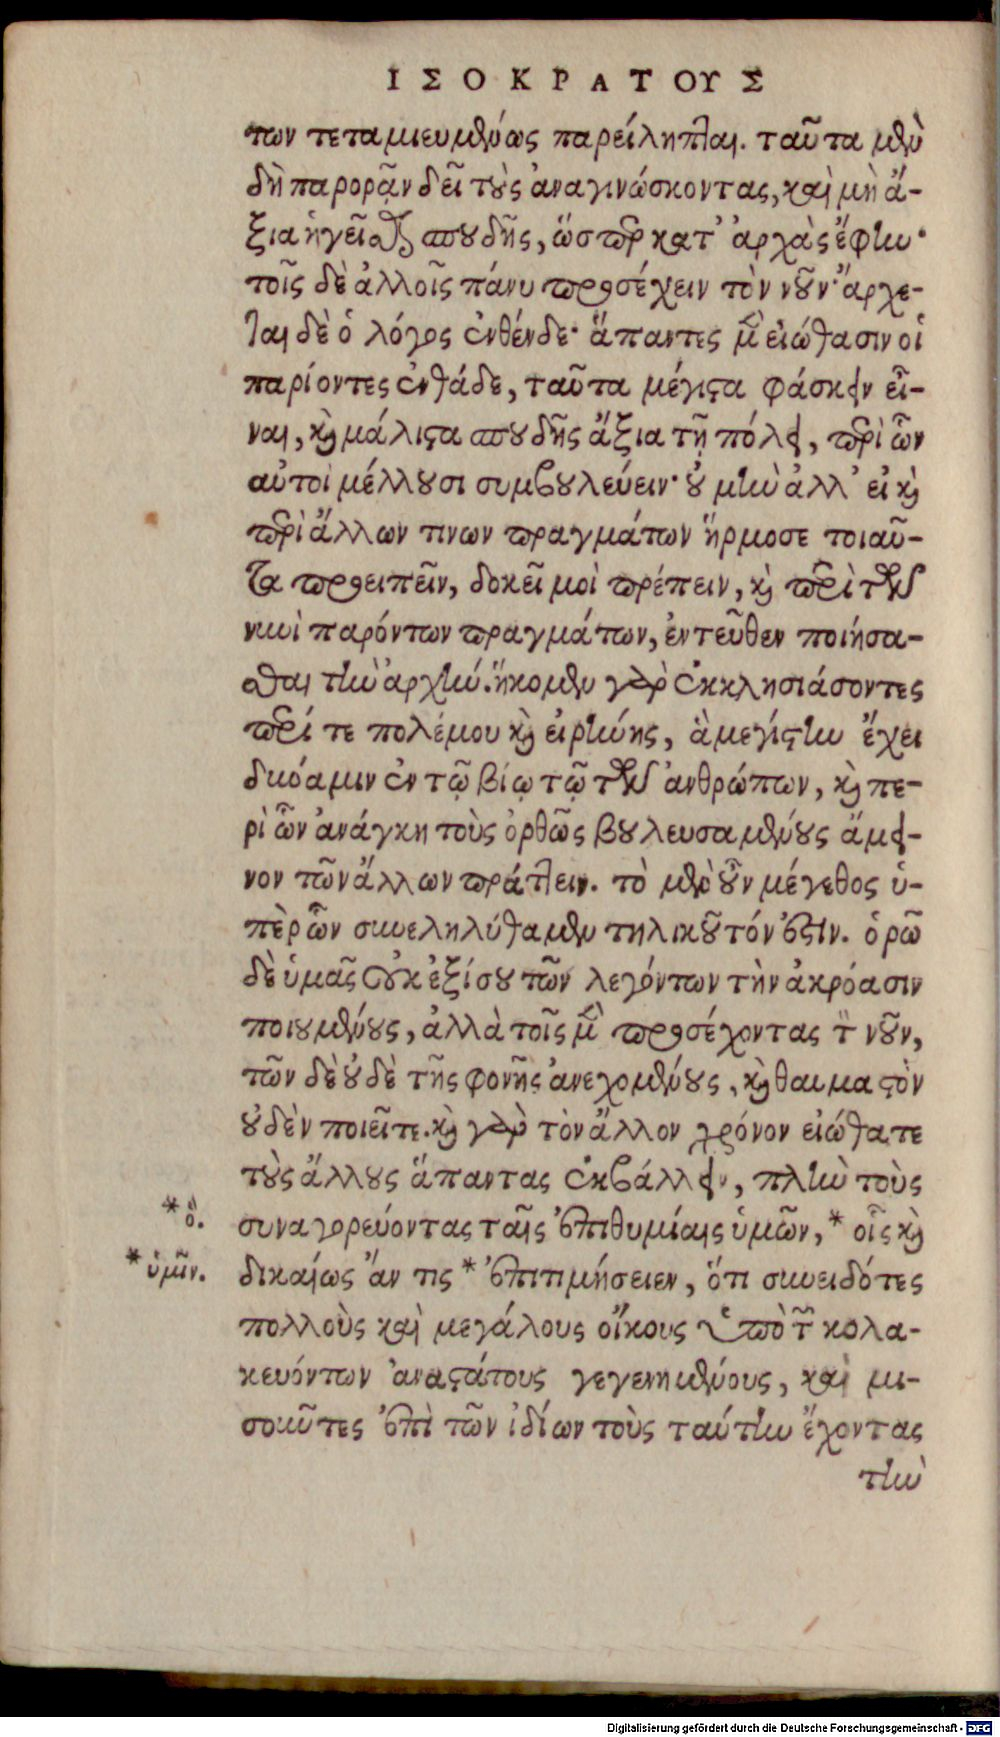 ΙΣΟΚΡΑΤΟΥΣ
των τεταμιευμένως παρείληπται. ταῦτα μὲν
δὴ παρορᾷν δεῖ τοὺς ἀναγινώσκοντας, καὶ μὴ ἄ-
ξια ἡγεῖσθαι σπουδῆς, ὥσπερ κατ' ἀρχὰς ἔφην·
τοῖς δὲ ἄλλοις πάνυ προσέχειν τὸν νοῦν· ἄρχε-
ται δὲ ὁ λόγος ἐνθένδε· ἅπαντες μὲν εἰώθασιν οἱ
παρίοντες ἐνθάδε, ταῦτα μέγιστα φάσκειν εἶ-
ναι, καὶ μάλιστα σπουδῆς ἄξια τῇ πόλει, περὶ ὧν
αὐτοὶ μέλλουσι συμβουλεύειν· οὐ μὴν ἀλλ' εἰ καὶ
περὶ ἄλλων τινων πραγμάτων ἥρμοσε τοιαῦ-
τα προειπεῖν, δοκεῖ μοὶ πρέπειν, καὶ περὶ τῶν
νυνὶ παρόντων πραγμάτων, ἐντεῦθεν ποιήσα-
σθαι τὴν ἀρχήν. ἥκομεν γὰρ ἐκκλησιάσοντες
περί τε πολέμου καὶ εἰρήνης, ἃ μεγίστην ἔχει
δύναμιν ἐν τῷ βίῳ τῷ τῶν ἀνθρώπων, καὶ πε-
ρὶ ὧν ἀνάγκη τοὺς ὀρθῶς βουλευσαμένους ἄμει-
νον τῶν ἄλλων πράττειν. τὸ μὲν οὖν μέγεθος ὑ-
πὲρ ὧν συνεληλύθαμεν τηλικοῦτόν ἐστιν. ὁρῶ
δὲ ὑμᾶς οὐκ ἐξίσου τῶν λεγόντων τὴν ἀκρόασιν
ποιουμένους, ἀλλὰ τοῖς μὲν προσέχοντας τὸν νοῦν,
τῶν δὲ οὐδὲ τῆς φονῆς ἀνεχομένους, καὶ θαυμαστὸν
οὐδὲν ποιεῖτε. καὶ γὰρ τὸν ἄλλον χρόνον εἰώθατε
τοὺς ἄλλους ἅπαντας ἐκβάλλειν, πλὴν τοὺς
*ὃ. συναγορεύοντας ταῖς ἐπιθυμίαις ὑμῶν, * οἷς καὶ
*ὑμῖν. δικαίως ἄν τις * ἐπιτιμήσειεν, ὅτι συνειδότες
πολλοὺς καὶ μεγάλους οἴκους ὑπὸ τῶν κολα-
κευόντων ἀναστάτους γεγενημένους, καὶ μι-
σοῦντες ἐπὶ τῶν ἰδίων τοὺς ταύτην ἔχοντας
τὴν
Digitalisierung gefördert durch die Deutsche Forschungsgemeinschaft - DFG